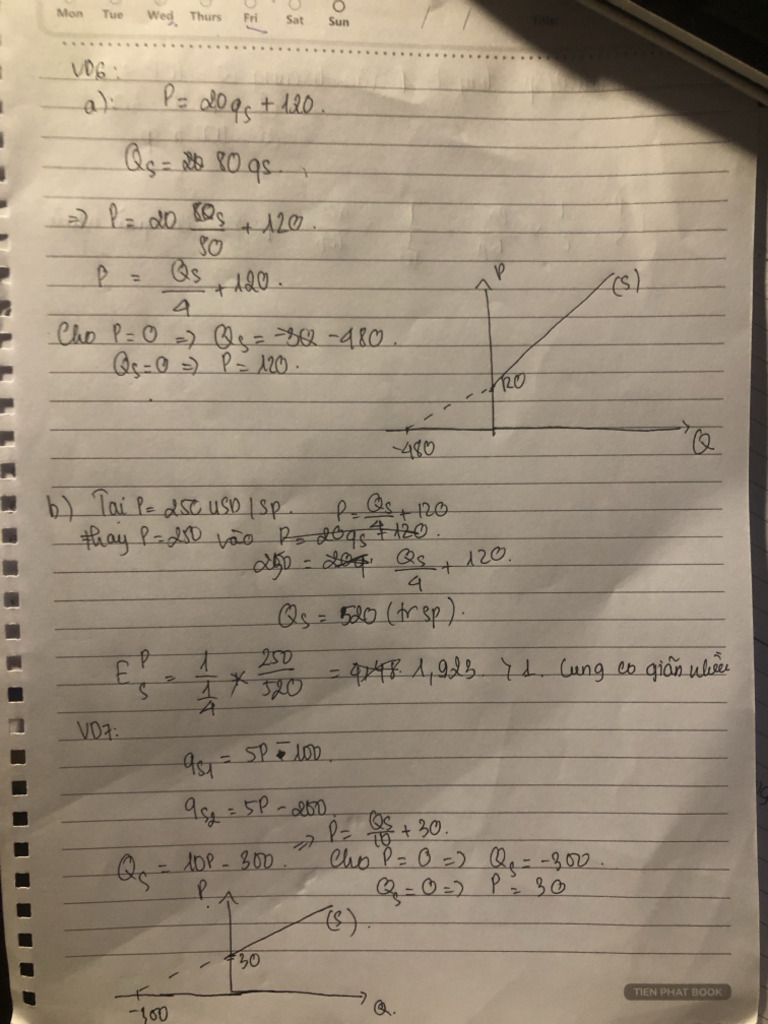 Mon Tue Wed Thurs Fri Sat Sun
VD6:
a): P = 20qs + 120.
Qs = 80 qs.
=> P = 20 Qs/80 + 120.
P = Qs/4 + 120.
Cho P=0 => Qs = -480.
Qs=0 => P = 120.
P
(S)
120
-480
Q
b) Tại P = 250 USD/SP. P = Qs/4 + 120
thay P = 250 vào P = 20qs + 120.
250 = Qs/4 + 120.
Qs = 520 (tr sp).
E_S^P = 1/(1/4) × 250/520 = 1,923 > 1. Cung co giãn nhiều
VD7:
qs1 = 5P - 100.
qs2 = 5P - 200.
=> P = Qs/10 + 30.
Qs = 10P - 300. Cho P = 0 => Qs = -300.
Qs = 0 => P = 30
P
(S).
30
-300
Q.
TIEN PHAT BOOK